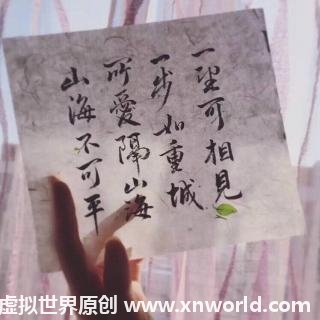 一望可相見
一步如重城
所愛隔山海
山海不可平
虚拟世界原创 www.xnworld.com